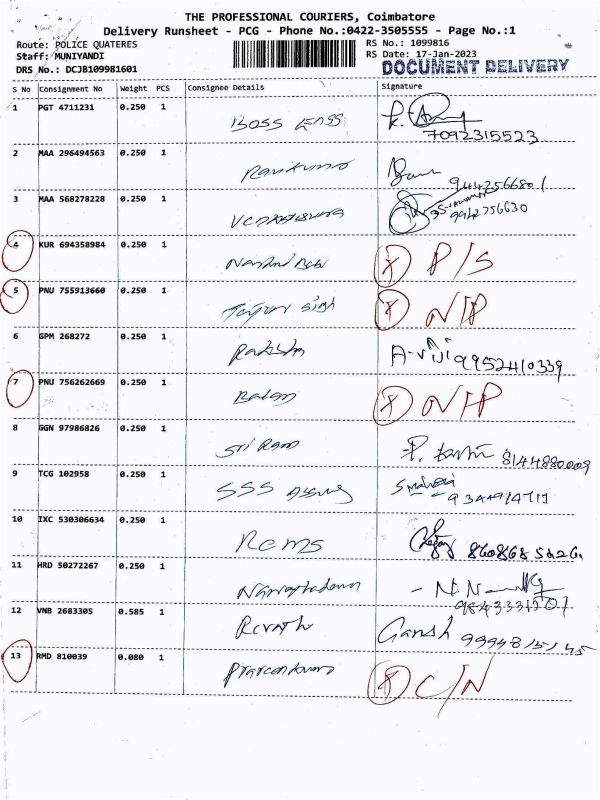 THE PROFESSIONAL COURIERS, Coimbatore
Delivery Runsheet - PCG - Phone No.:0422-3505555 - Page No.:1
Route: POLICE QUATERES RS No.: 1099816
Staff: MUNIYANDI RS Date: 17-Jan-2023
DRS No.: DCJB109981601 DOCUMENT DELIVERY
S No Consignment No Weight PCS Consignee Details Signature
1 PGT 4711231 0.250 1 Boss Engg
7092315523
2 MAA 296494563 0.250 1 Ravikumar
9442566801
3 MAA 568278228 0.250 1
9942756630
4 KUR 694358984 0.250 1 P/S
5 PNU 755913660 0.250 1 N/P
6 GPM 268272 0.250 1 Rakesh A-viji 9952410339
7 PNU 756262669 0.250 1 Balan N/P
8 GGN 97986826 0.250 1 Sri Ram 8144880009
9 TCG 102958 0.250 1 SSS
10 IXC 530306634 0.250 1 Rems
11 HRD 50272267 0.250 1
12 VNB 2683305 0.585 1 Revathi Ganesh 9994815145
13 RMD 810039 0.080 1 C/N